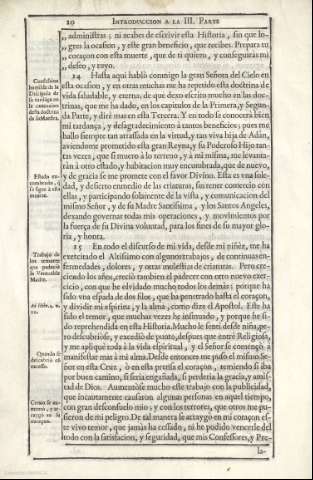 20 INTRODUCCION A LA III. PARTE
„ administras; ni acabes de escrivir esta Historia, sin que lo-
„ gres la ocasion, y este gran beneficio, que recibes. Prepara tu
„ coraçon con esta muerte, que de ti quiero, y conseguiràs mi
„ deseo, y tuyo.
14 Hasta aqui hablò conmigo la gran Señora del Cielo en
esta ocasion, y en otras muchas me ha repetido esta doctrina de
vida saludable, y eterna, de que dexo escrito mucho en las doc-
trinas, que me ha dado, en los capitulos de la Primera, y Segun-
da Parte, y dirè mas en esta Tercera. Y en todo se conocerà bien
mi tardança, y desagradecimiento à tantos beneficios; pues me
hallo siempre tan atrassada en la virtud, y tan viva hija de Adàn,
aviendome prometido esta gran Reyna, y su Poderoso Hijo tan-
tas vezes, que si muero à lo terreno, y à mi misma, me levanta-
ràn à otro estado, y habitacion muy encumbrada, que de nuevo,
y de gracia se me promete con el favor Divino. Esta es vna sole-
dad, y desierto enmedio de las criaturas, sin tener comercio con
ellas, y participando solamente de la vista, y comunicacion del
mismo Señor, y de su Madre Santissima, y los Santos Angeles,
dexando governar todas mis operaciones, y movimientos por
la fuerça de su Divina voluntad, para los fines de su mayor glo-
ria, y honra.
15 En todo el discurso de mi vida, desde mi niñèz, me ha
exercitado el Altissimo con algunos trabajos, de continuas en-
fermedades, dolores, y otras molestias de criaturas. Pero cre-
ciendo los años, creciò tambien el padecer con otro nuevo exer-
cicio, con que he olvidado mucho todos los demàs; porque ha
sido vna espada de dos filos, que ha penetrado hasta el coraçon,
y dividido mi espiritu, y la alma, como dize el Apostol. Este ha
sido el temor, que muchas vezes he insinuado, y porque he si-
do reprehendida en esta Historia. Mucho le sentì desde niña, pe-
ro descubriòse, y excediò de punto, despues que entrè Religiosa,
y me apliquè toda à la vida espiritual, y el Señor se començò à
manifestar mas à mi alma. Desde entonces me puso el mismo Se-
ñor en esta Cruz, ò en esta prensa el coraçon, temiendo si iba
por buen camino, si seria engañada, si perderia la gracia, y amis-
tad de Dios. Aumentòse mucho este trabajo con la publicidad,
que incautamente causaron algunas personas en aquel tiempo,
con gran desconsuelo mio, y con los terrores, que otros me pu-
sieron de mi peligro. De tal manera se arraygò en mi coraçon es-
te vivo temor, que jamàs ha cessado, ni he podido vencerle del
todo con la satisfacion, y seguridad, que mis Confessores, y Pre-
la-
Estado en-
cumbrado, q
se sigue à esta
muerte.
Trabajos de
los temores
que padeciò
la Venerable
Madre.
Ad Hebr. 4. v.
12.
Quando se
descubriò su
excesso.